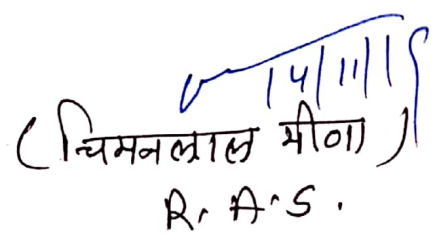 14/11/15
(चिमनलाल मीणा)
R. A. S.